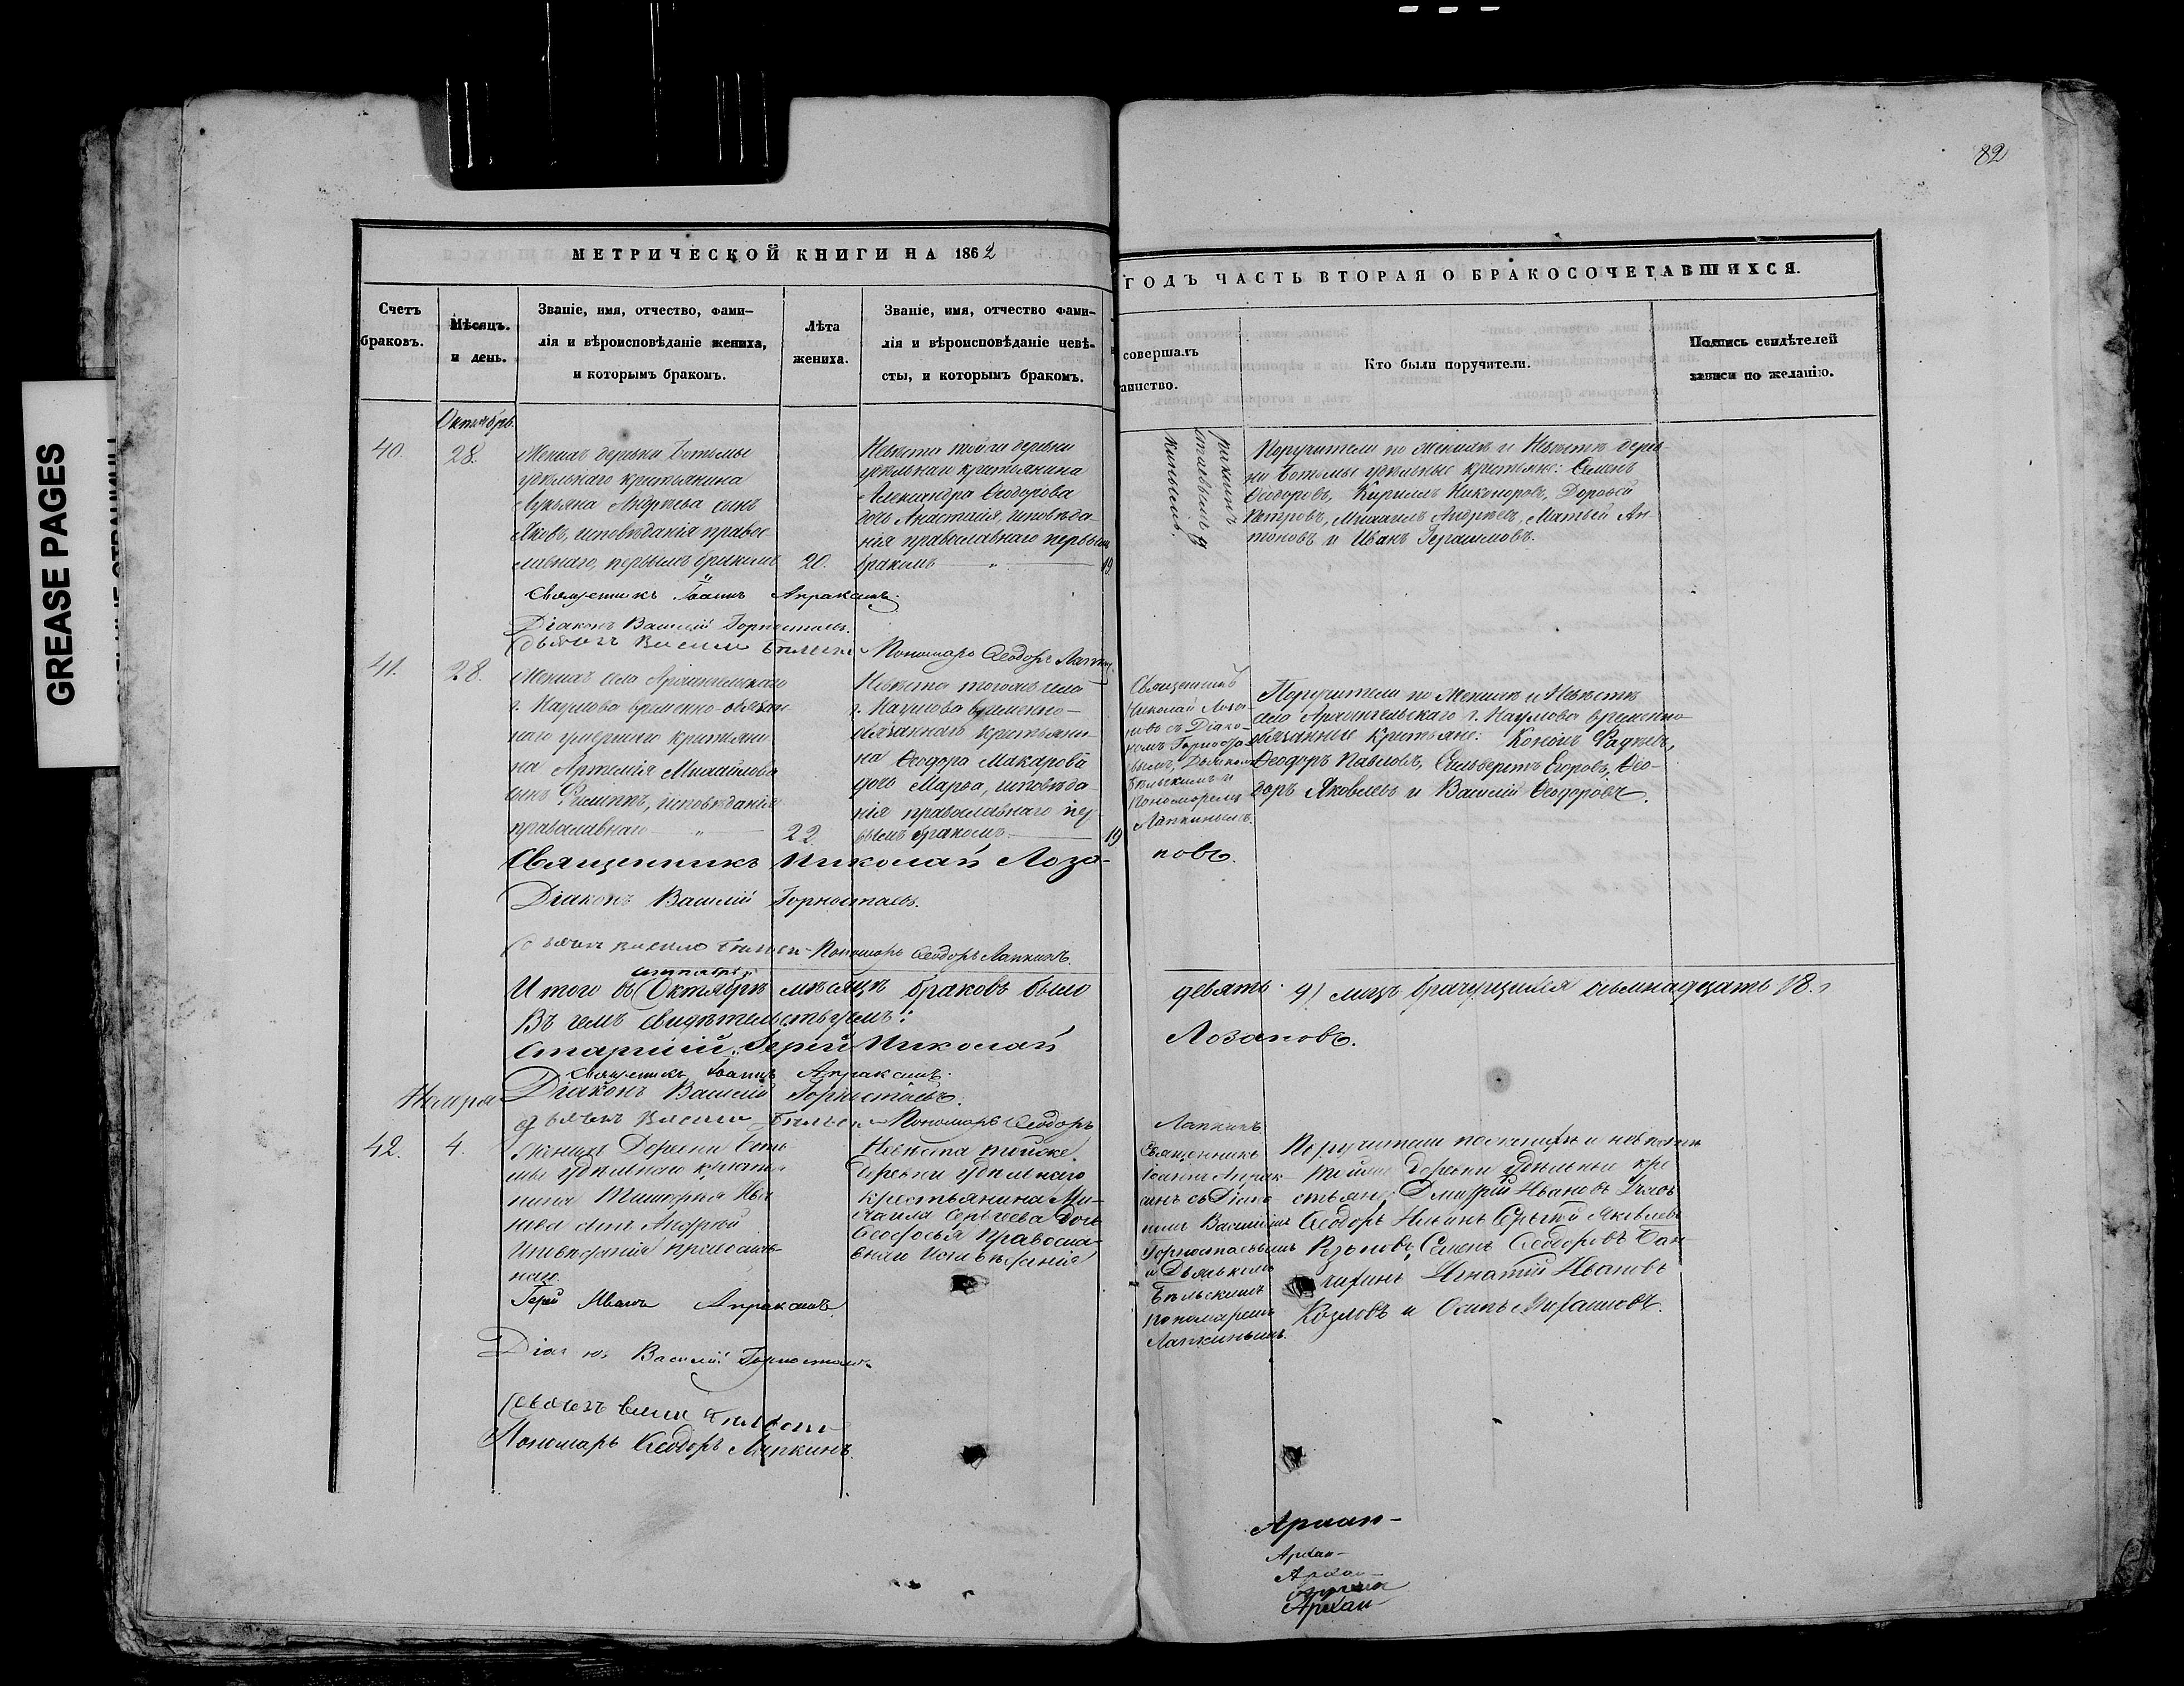 GREASE PAGES
82
МЕТРИЧЕСКОЙ КНИГИ НА 1862
ГОДЪ ЧАСТЬ ВТОРАЯ О БРАКОСОЧЕТАВШИХСЯ.
Счетъ
браковъ.
Мѣсяцъ.
и день.
Званіе, имя, отчество, фами-
лія и вѣроисповѣданіе жениха,
и которымъ бракомъ.
Лѣта
жениха.
Званіе, имя, отчество фами-
лія и вѣроисповѣданіе невѣ-
сты, и которымъ бракомъ.
совершалъ
аинство.
Кто были поручители.
Подпись свидѣтелей
записи по желанію.
Октябрь.
40.
28.
Женихъ деревни Ботьмы
удѣльнаго крестьянина
Лукьяна Андреева сынъ
Яковъ, исповѣданія правос
лавнаго, первымъ бракомъ
20.
Невѣста той же деревни
удѣльнаго крестьянина
Александра Ѳеодорова
дочь Анастасія, исповѣда-
нія православнаго первымъ
бракомъ
19
Поручители по женихѣ и невѣстѣ дерев-
ни Ботьмы удѣльные крестьяне: Семенъ
Ѳеодоровъ, Кириллъ Никоноровъ, Дороѳей
Петровъ, Михаилъ Андреевъ, Матвей Ан-
тоновъ и Иванъ Герасимовъ.
Священникъ Іоаннъ Апраксинъ.
Діаконъ Василій Горностаевъ.
Пономарь Ѳеодоръ Лапкинъ
41.
28.
Женихъ села Архангельскаго
г. Наумова временно-обязан
наго умершаго крестьяни
на Артемія Михайлова
сынъ Филиппъ, исповѣданія
православнаго
22
Невѣста тогожъ села
г. Наумова временно-
обязаннаго крестьяни-
на Ѳеодора Макарова
дочь Марѳа, исповѣда-
нія православнаго пер-
вымъ бракомъ
19
Священникъ
Николай Лоза-
новъ съ Діако-
номъ Горноста-
евымъ, Дьячкомъ
Бѣльскимъ и
Пономаремъ
Лапкинымъ.
Поручители по женихѣ и невѣстѣ
села Архангельскаго г. Наумова временно
обязанные крестьяне: Кононъ Фадѣевъ,
Ѳеодоръ Павловъ, Сильверстъ Егоровъ, Ѳео-
доръ Яковлевъ и Василій Ѳеодоровъ.
Священникъ Николай Лоза-
новъ.
Діаконъ Василій Горностаевъ.
Пономарь Ѳеодоръ Лапкинъ.
Итого въ Октябрѣ мѣсяцѣ браковъ было
девять 9) лицъ брачущихся осьмнадцать 18.
Въ чемъ свидѣтельствуемъ:
Старшій Іерей Николай
Лозановъ.
Священникъ Іоаннъ Апраксинъ.
Діаконъ Василій Горностаевъ.
Пономарь Ѳеодоръ
Лапкинъ
42.
4.
Женихъ Деревни Боть
мы удѣльнаго крестья
нина Тимоѳея Ива
нова сынъ Андрей
Исповѣданія православ-
наго.
Невѣста тойже
Деревни удѣльнаго
крестьянина Ми-
хаила Сергеева Дочь
Ѳеодосья Правосла-
внаго Исповѣданія
Священникъ
Іоаннъ Апрак-
синъ съ Діако-
номъ Василіемъ
Горностаевымъ
и Дьячкомъ
Бѣльскимъ
пономаремъ
Лапкинымъ.
Поручители по женихѣ и невѣстѣ
тойже Деревни Удѣльные кре
стьяне: Дмитрій Ивановъ
Ѳеодоръ Ильинъ Сергѣй Яковлевъ
Семенъ Ѳеодоровъ
Игнатій Ивановъ
Козловъ и Осипъ
Іерей Иванъ Апраксинъ.
Василій Горностаевъ
Пономарь Ѳеодоръ Лапкинъ.
Архан-
Архан-
Архан-
Архан